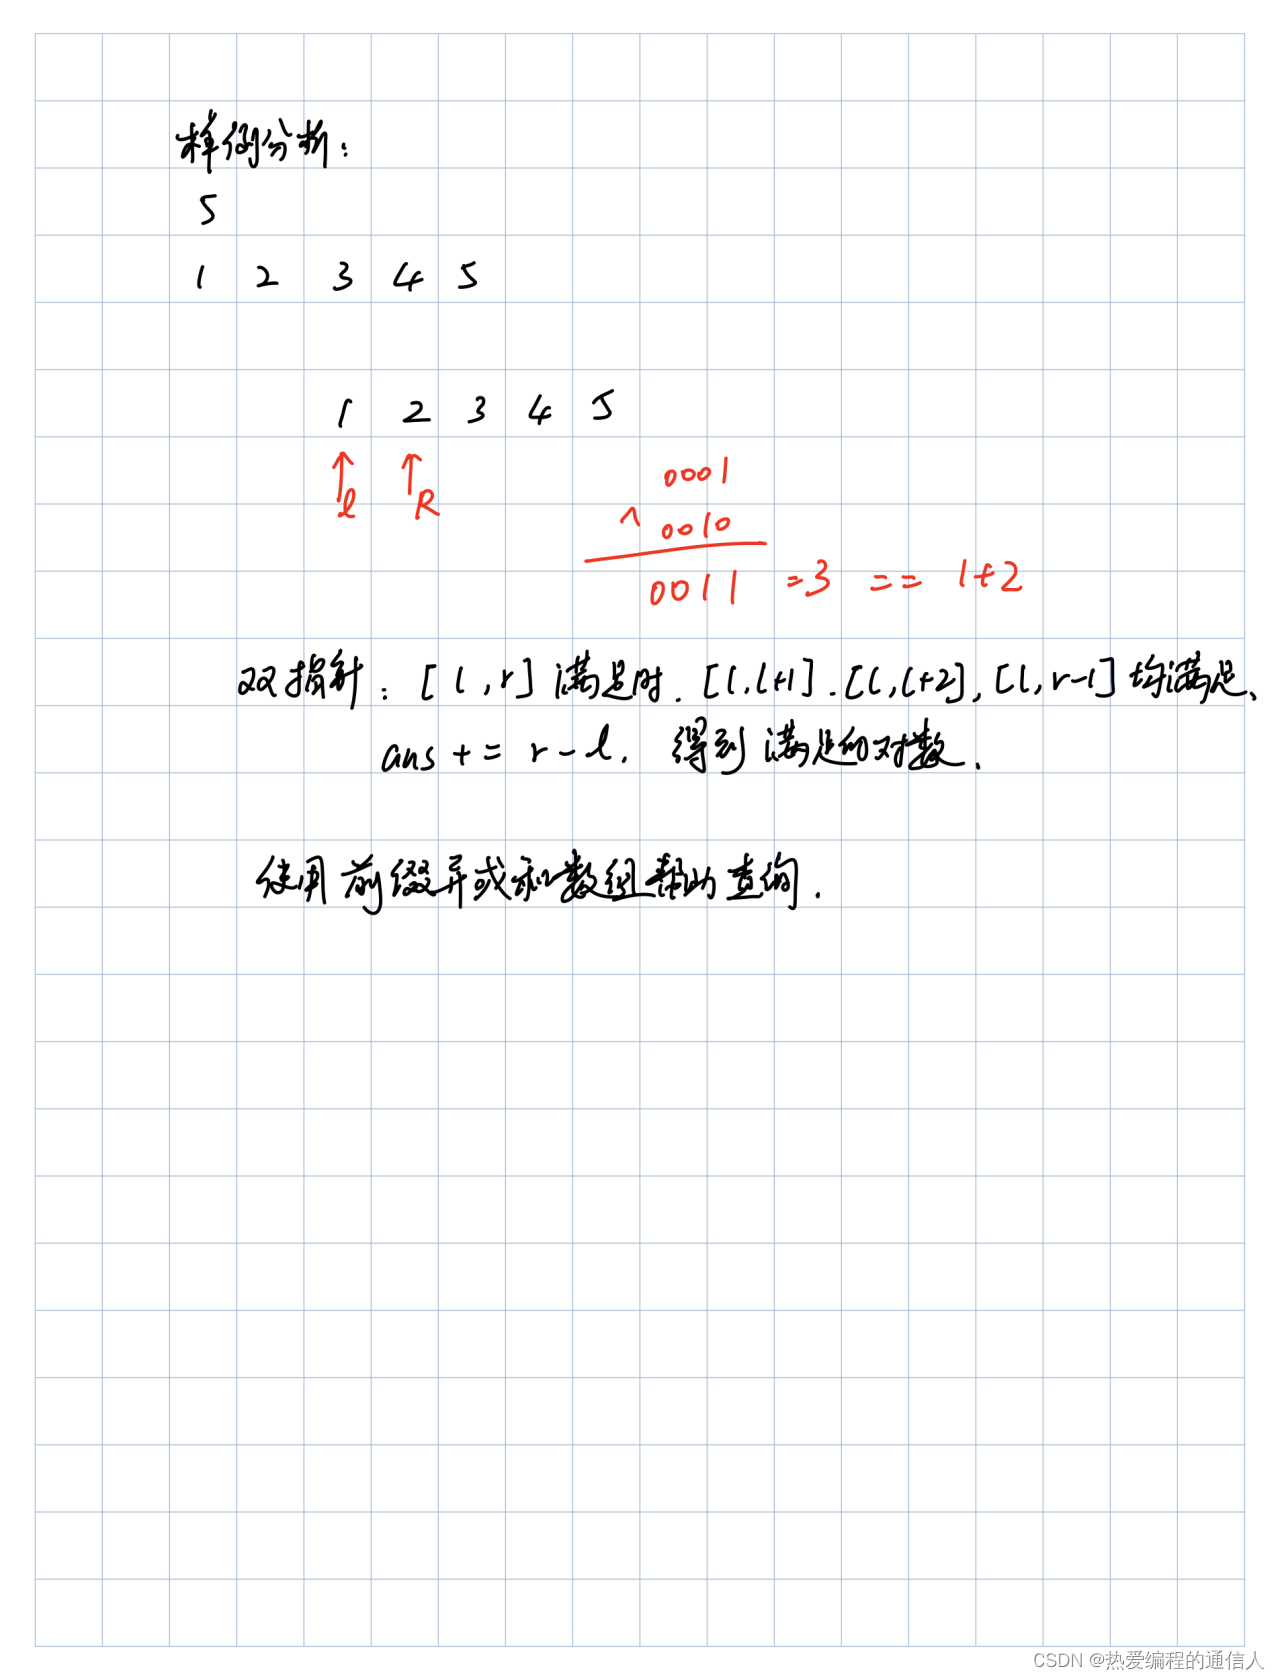 样例分析：
5
1 2 3 4 5
1 2 3 4 5
l R
0001
^ 0010
0011 =3 == 1+2
双指针：[l,r]满足时.[l,l+1].[l,l+2],[l,r-1]均满足、
ans += r-l. 得到满足的对数.
使用前缀异或和数组帮助查询.
CSDN @热爱编程的通信人